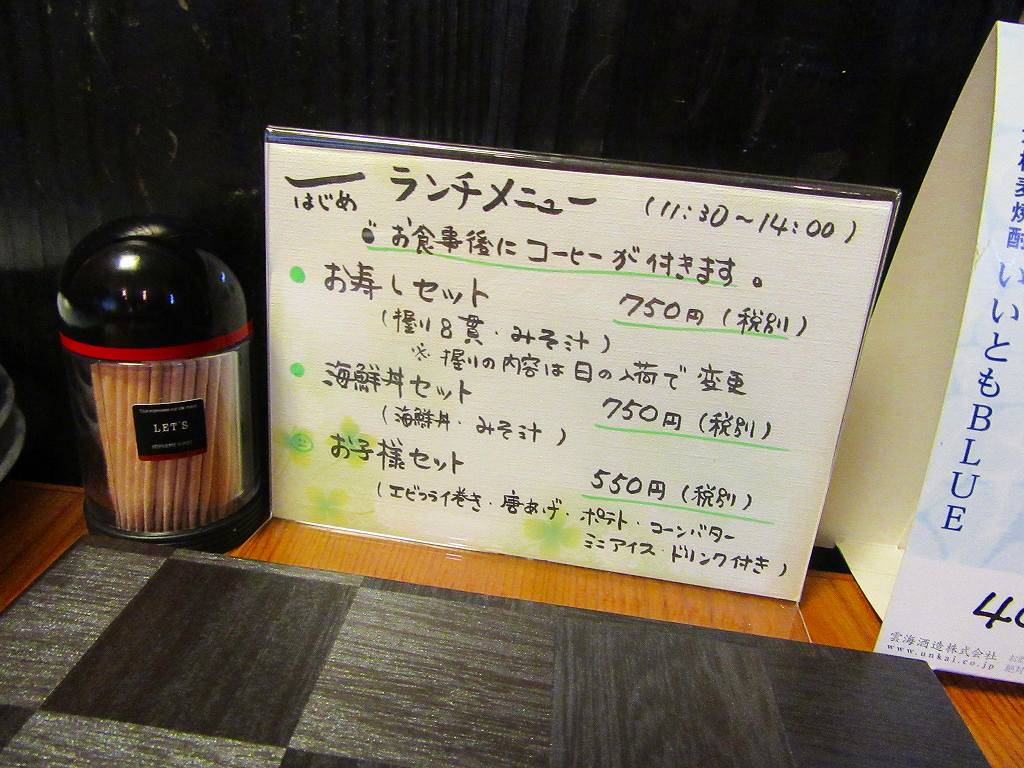 一 ランチメニュー (11:30~14:00)
はじめ
お食事後にコーヒーが付きます。
お寿しセット 750円(税別)
(握り8貫・みそ汁)
※握りの内容は日の入荷で変更
海鮮丼セット 750円(税別)
(海鮮丼・みそ汁)
お子様セット 550円(税別)
(エビフライ巻き・唐あげ・ポテト・コーンバター
ミニアイス・ドリンク付き)
LET'S
麦焼酎 いいともBLUE
雲海酒造株式会社
www.unkai.co.jp